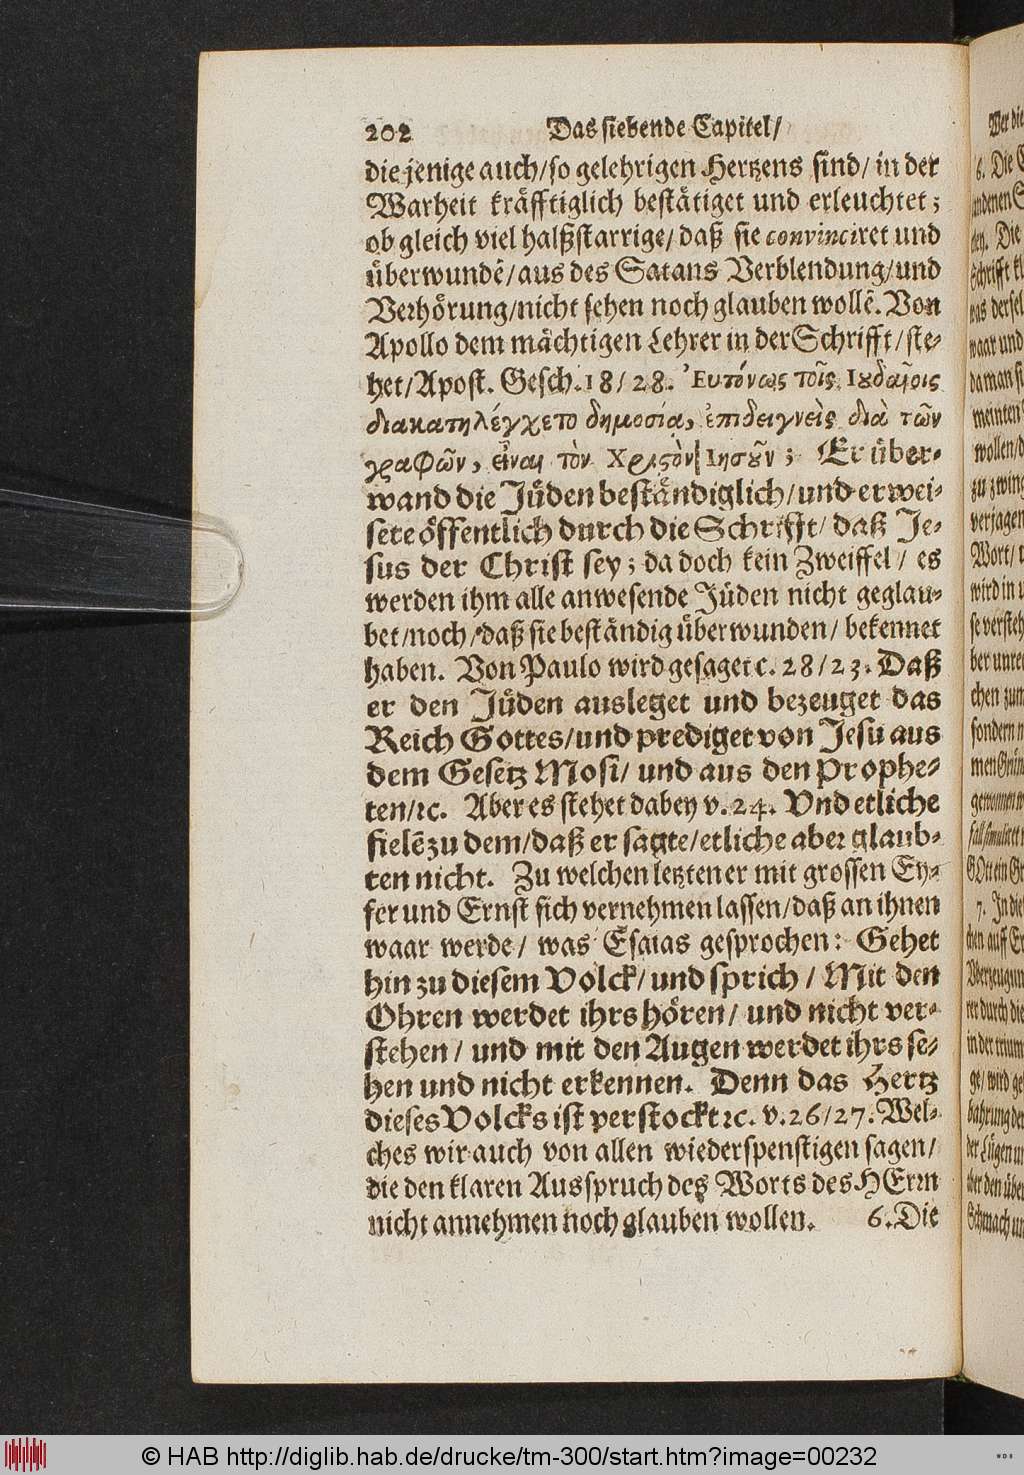 202 Das siebende Capitel/
die jenige auch/so gelehrigen Hertzens sind/ in der
Warheit kräfftiglich bestätiget und erleuchtet;
ob gleich viel halßstarrige/ daß sie convinciret und
überwundẽ/ aus des Satans Verblendung/und
Verhörung/nicht sehen noch glauben wollẽ. Von
Apollo dem mächtigen Lehrer in der Schrifft/ ste-
het/Apost. Gesch. 18/28. Ἐυτόνως τοῖς Ιουδαίοις
διακατηλέγχετο δημοσία, ἐπιδειγνεὶς διὰ τῶν
γραφῶν, εἶναι τὸν Χριϛὸν Ιησοῦν; Er über-
wand die Jüden beständiglich/und erwei-
sete öffentlich durch die Schrifft/ daß Je-
sus der Christ sey; da doch kein Zweiffel/ es
werden ihm alle anwesende Jüden nicht geglau-
bet/noch/daß sie beständig überwunden/ bekennet
haben. Von Paulo wird gesaget c. 28/23. Daß
er den Jüden ausleget und bezeuget das
Reich Gottes/und prediget von Jesu aus
dem Gesetz Mosi/ und aus den Prophe-
ten/ꝛc. Aber es stehet dabey v. 24. Vnd etliche
fielẽ zu dem/daß er sagte/etliche aber glaub-
ten nicht. Zu welchen letzten er mit grossen Ey-
fer und Ernst sich vernehmen lassen/daß an ihnen
waar werde/ was Esaias gesprochen: Gehet
hin zu diesem Volck/ und sprich/ Mit den
Ohren werdet ihrs hören/ und nicht ver-
stehen/ und mit den Augen werdet ihrs se-
hen und nicht erkennen. Denn das Hertz
dieses Volcks ist verstockt ꝛc. v. 26/27. Wel-
ches wir auch von allen wiederspenstigen sagen/
die den klaren Ausspruch des Worts des HErrn
nicht annehmen noch glauben wollen. 6. Die
© HAB http://diglib.hab.de/drucke/tm-300/start.htm?image=00232